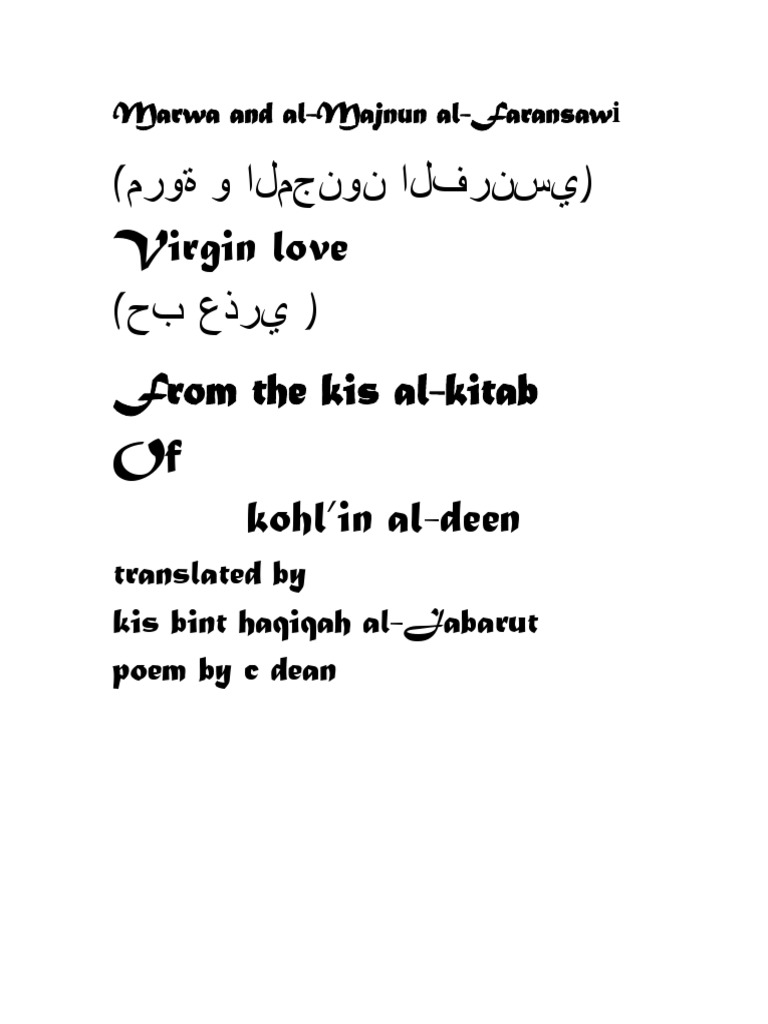 Marwa and al-Majnun al-Faransawi
(مروة و المجنون الفرنسي)
Virgin love
(حب عذري )
From the kis al-kitab
Of
kohl'in al-deen
translated by
kis bint haqiqah al-Jabarut
poem by c dean